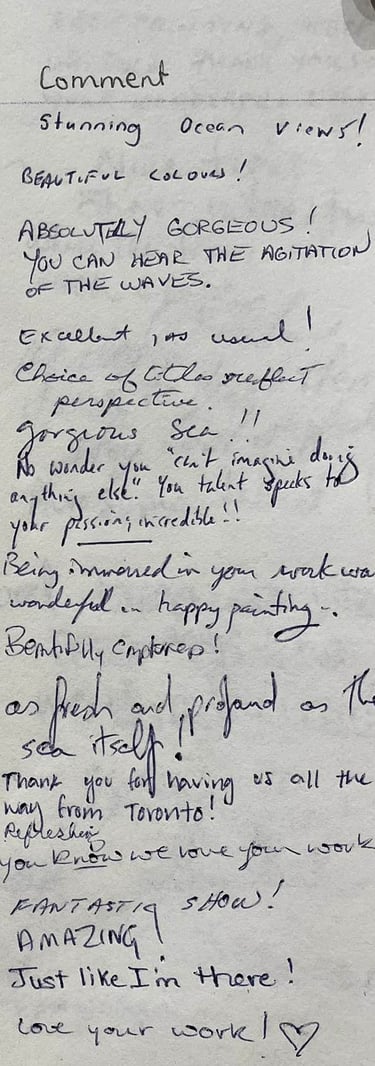 Comment
Stunning Ocean Views!
BEAUTIFUL COLOURS!
ABSOLUTELY GORGEOUS!
YOU CAN HEAR THE AGITATION
OF THE WAVES.
Excellent, as usual!
Choice of titles reflect
perspective.
gorgious Sea!!!
No wonder you "can't imagine doing
anything else." You talent speaks to
your passion; incredible!!
Being immersed in your work was
wonderful... happy painting -.
Beautifully Captured!
as fresh and profound as the
sea itself!
Thank you for having us all the
way from Toronto!
Refreshing
you know we love your work
FANTASTIQ SHOW!
AMAZING!
Just like I'm there!
love your work! ♡